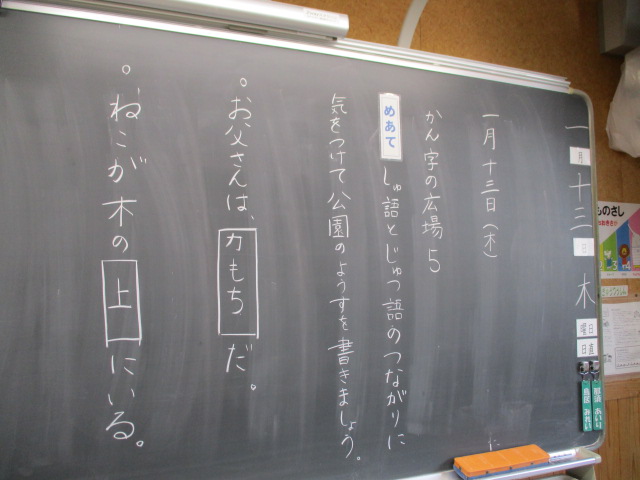 一月十三日木曜日
日直
一月十三日(木)
かん字の広場5
めあて しゅ語とじゅつ語のつながりに
気をつけて公園のようすを書きましょう。
。お父さんは、力もちだ。
。ねこが木の上にいる。
ものさし